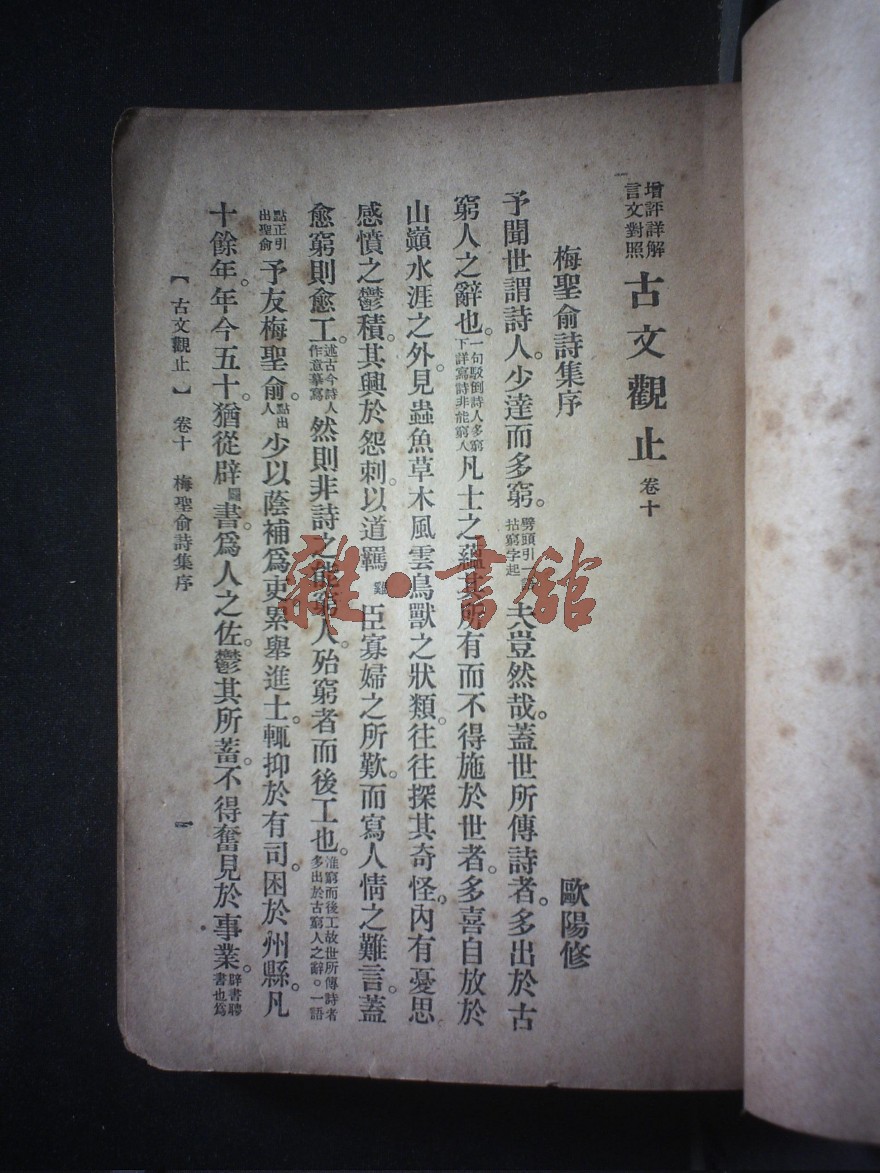 增評詳解
言文對照
古文觀止 卷十
梅聖俞詩集序
歐陽修
予聞世謂詩人。少達而多窮。劈頭引一語拈窮字起夫豈然哉。蓋世所傳詩者。多出於古
窮人之辭也。一句駁倒詩人多窮下詳寫詩非能窮人凡士之蘊其所有而不得施於世者。多喜自放於
山巔水涯之外。見蟲魚草木風雲鳥獸之狀類。往往探其奇怪。內有憂思
感憤之鬱積。其興於怨刺。以道羈雞臣寡婦之所歎。而寫人情之難言。蓋
愈窮則愈工。述古今詩人作意摹寫然則非詩之能窮人。殆窮者而後工也。惟窮而後工故世所傳詩者多出於古窮人之辭。一語
點正引出聖俞予友梅聖俞。點出人少以蔭補爲吏。累舉進士。輒抑於有司。困於州縣。凡
十餘年。年今五十。猶從辟書。爲人之佐。鬱其所蓄。不得奮見於事業。辟書聘書也爲
【古文觀止】 卷十 梅聖俞詩集序
一
雜·書館